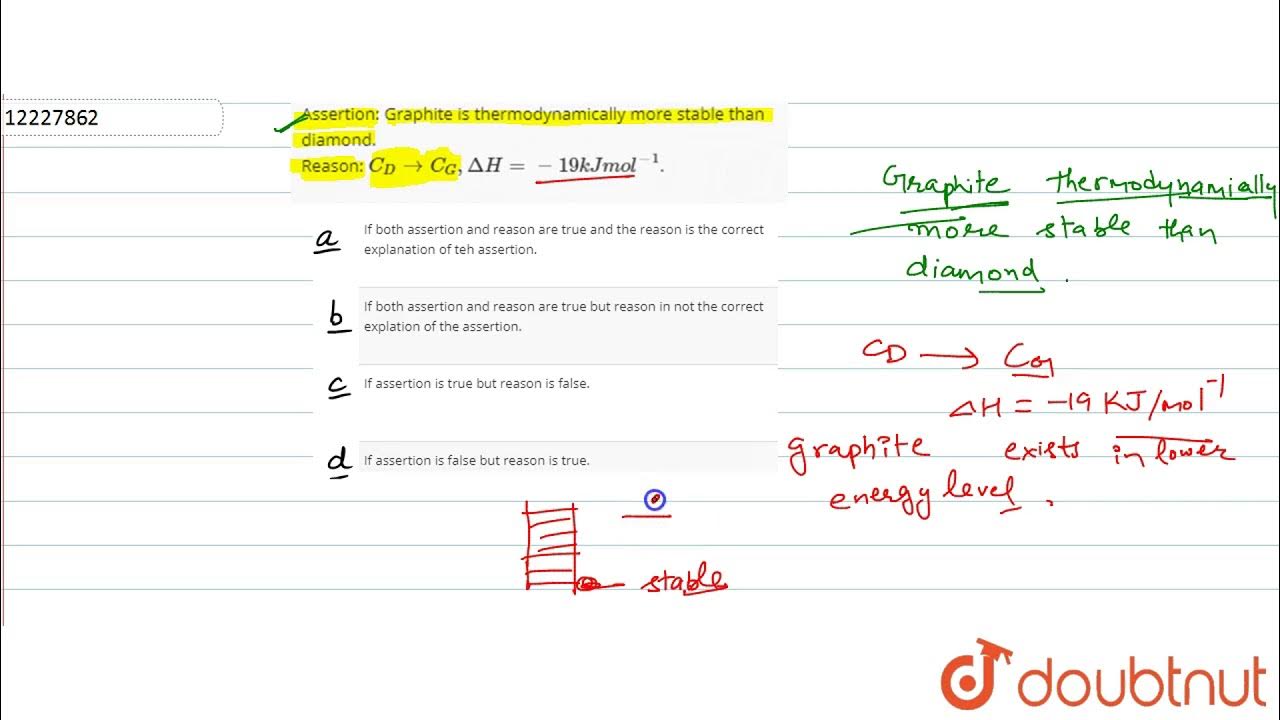 12227862
Assertion: Graphite is thermodynamically more stable than
diamond.
Reason: C_D → C_G, ΔH = − 19kJmol⁻¹.
a
If both assertion and reason are true and the reason is the correct
explanation of teh assertion.
b
If both assertion and reason are true but reason in not the correct
explation of the assertion.
c
If assertion is true but reason is false.
d
If assertion is false but reason is true.
Graphite thermodynamially
more stable than
diamond.
CD → CG
ΔH = −19 KJ/mol⁻¹
graphite exists in lower
energy level.
stable
doubtnut